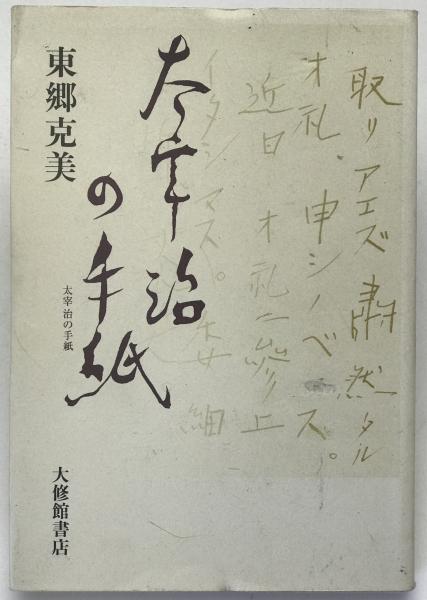 取リアエズ 肅然タル
オ礼、申シノベス。
近日 オ礼ニ參上
イタシマス。委細
太宰治
の手紙
太宰治の手紙
東郷克美
大修館書店